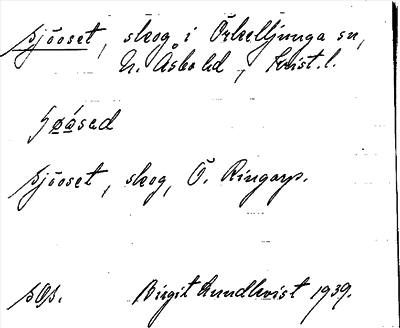 Sjöoset, skog i Örkelljunga sn,
N. Åsbo hd, Krist. l.
Sjöoset, skog, Ö. Ringarp.
Birgit Lundkvist 1939.